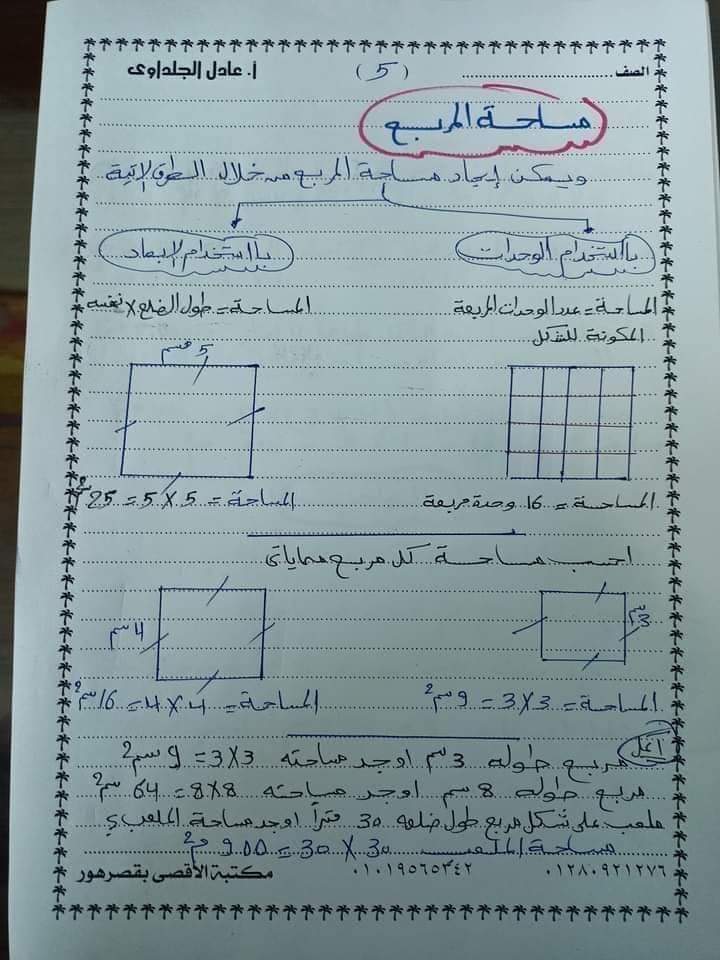 الصف ........ (5) أ. عادل الجلداوى
مساحة المربع
ويمكن إيجاد مساحة المربع من خلال الطرق الاتية
باستخدام الوحدات باستخدام الابعاد
المساحة = عدد الوحدات المربعة المساحة = طول الضلع × نفسه
المكونة للشكل
5 سم
المساحة = 16 وحدة مربعة المساحة = 5 × 5 = 25 سم2
احسب مساحة كل مربع ممايأتى
3 سم 4 سم
المساحة = 3 × 3 = 9 سم2 المساحة = 4 × 4 = 16 سم2
أكمل
مربع طوله 3 سم اوجد مساحته 3 × 3 = 9 سم2
مربع طوله 8 سم اوجد مساحته 8 × 8 = 64 سم2
ملعب على شكل مربع طول ضلعه 30 متراً اوجد مساحة الملعب ؟
مساحة الملعب 30 × 30 = 900 م2
٠١٢٨٠٩٢١٢٧٦ ٠١٠١٩٥٦٥٣٤٢ مكتبة الأقصى بقصرهور